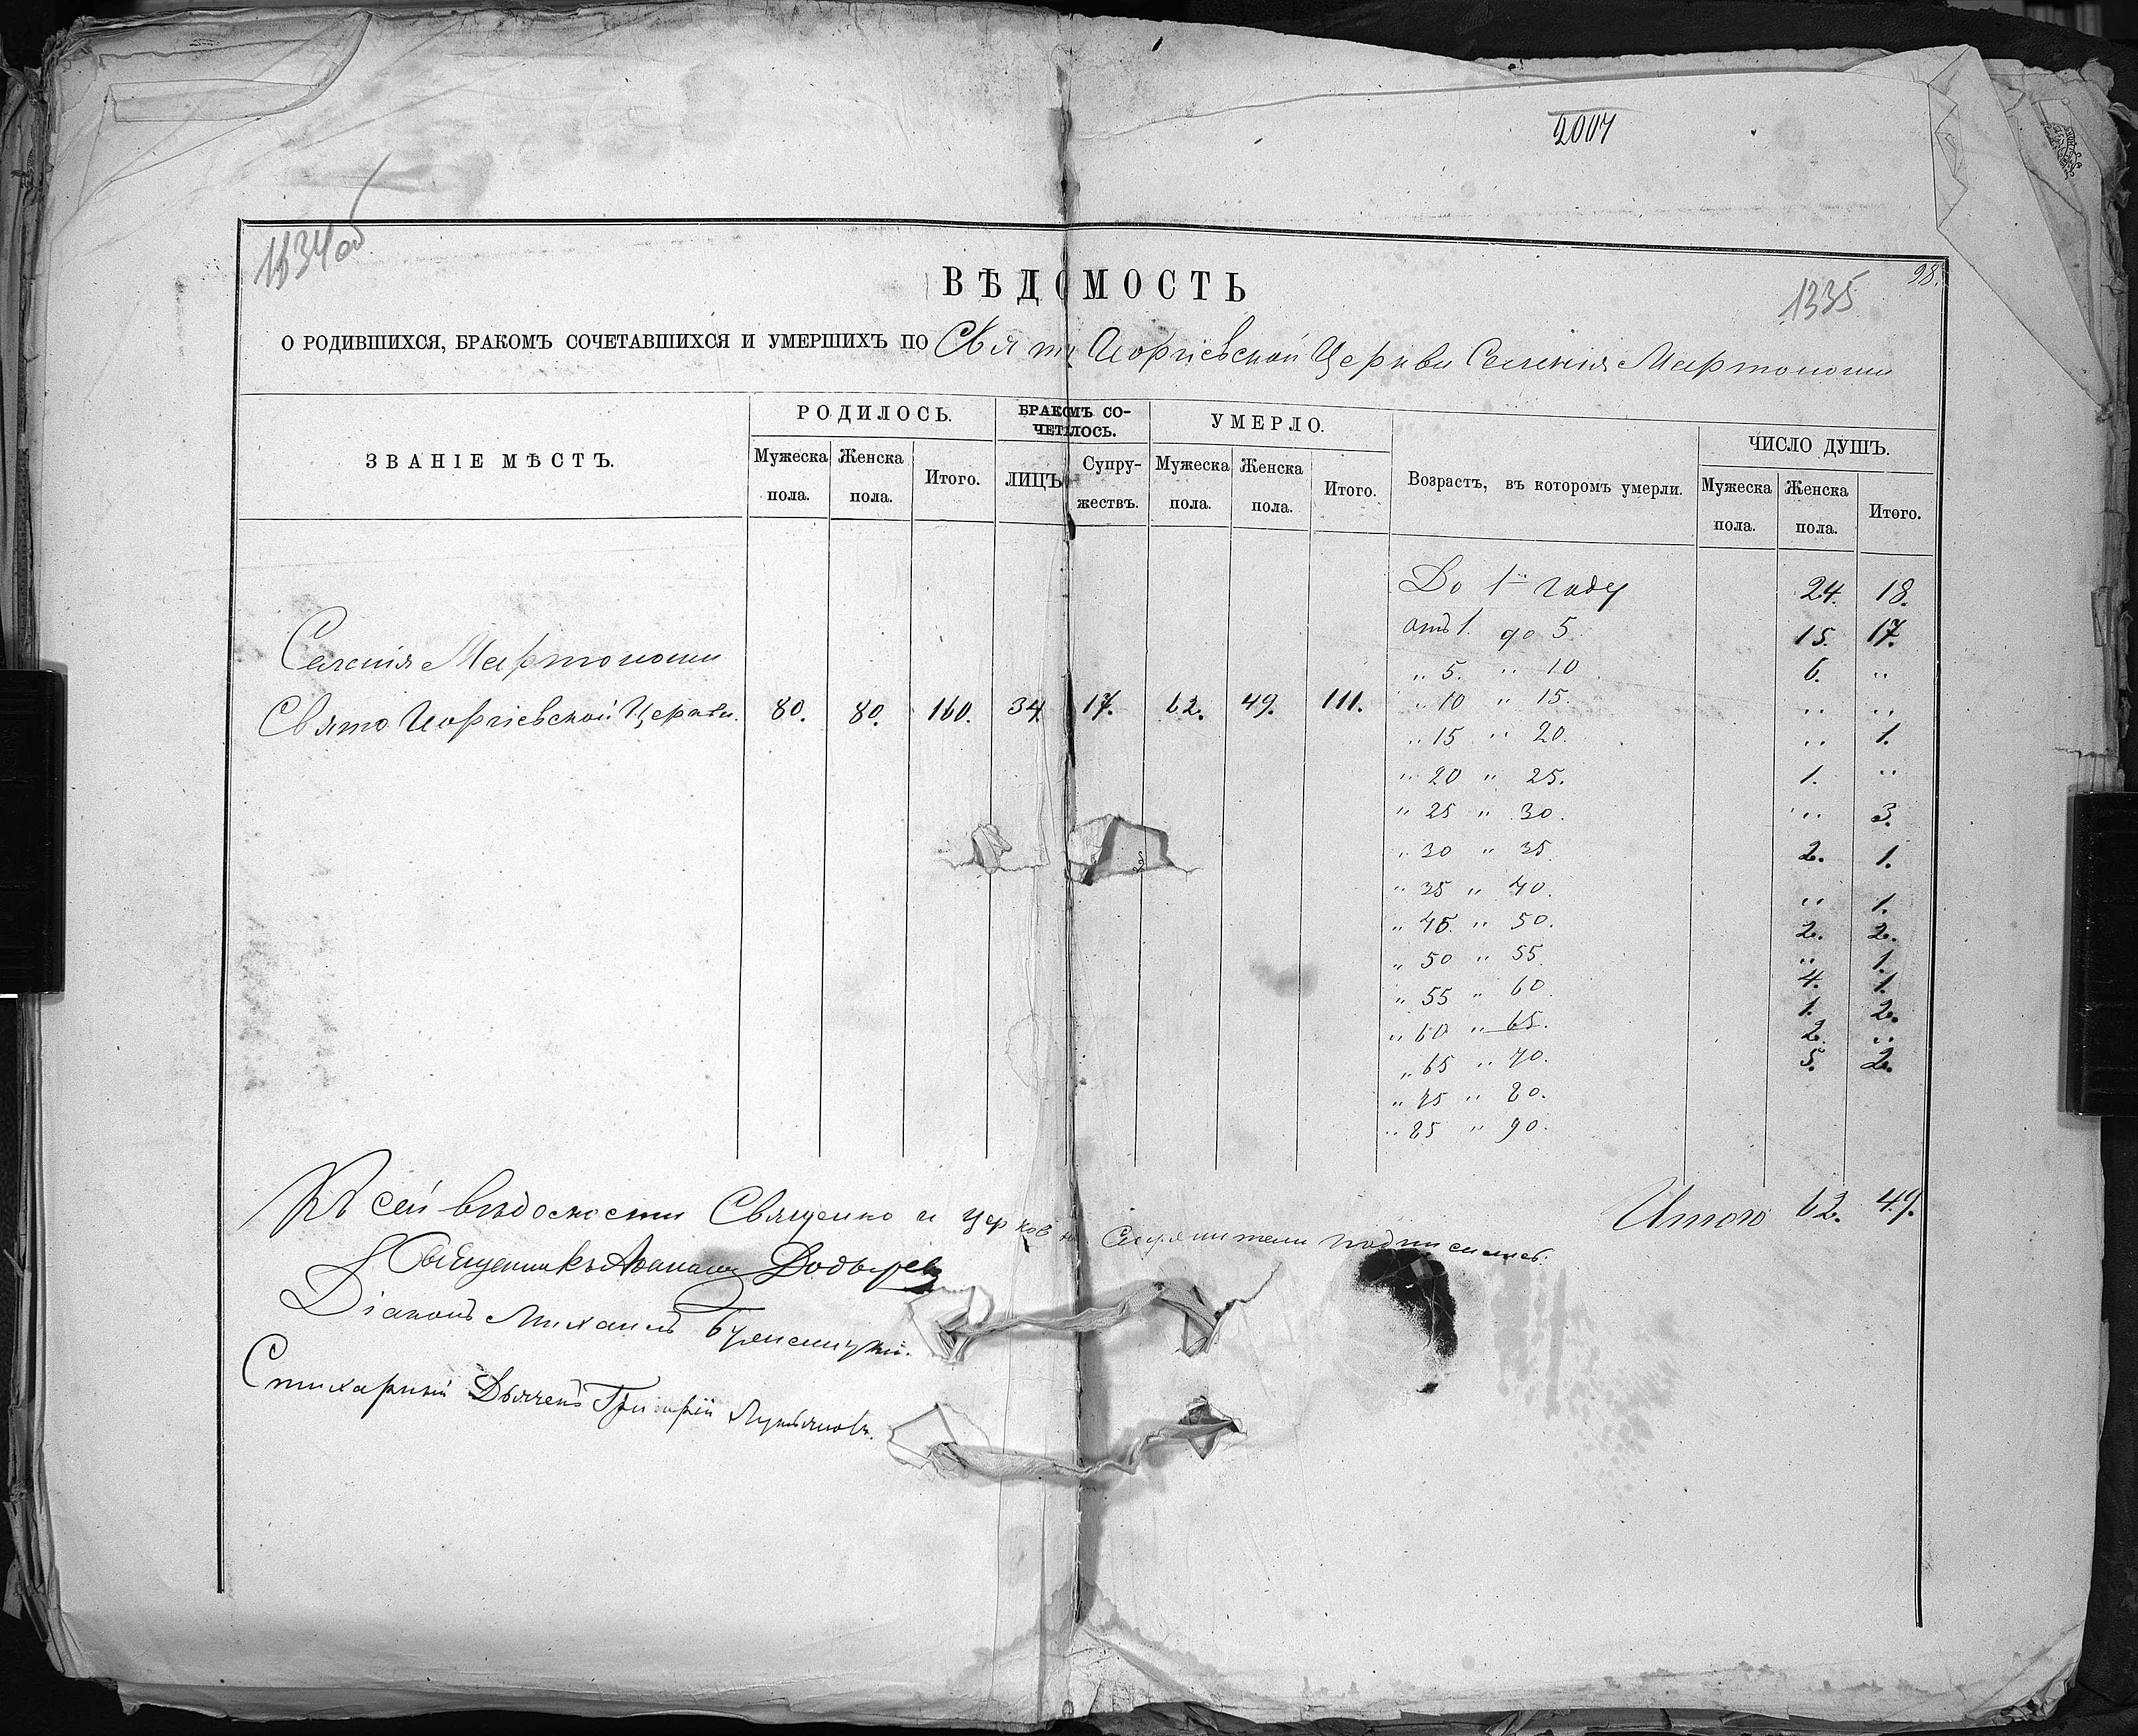 2007
1334об
98.
1335
ВѢДОМОСТЬ
О РОДИВШИХСЯ, БРАКОМЪ СОЧЕТАВШИХСЯ И УМЕРШИХЪ ПО Свято Георгіевской Церкви Селенія Мартоноши
ЗВАНІЕ МѢСТЪ. РОДИЛОСЬ. БРАКОМЪ СО-ЧЕТАЛОСЬ. УМЕРЛО. Возрастъ, въ которомъ умерли. ЧИСЛО ДУШЪ.
Мужеска пола. Женска пола. Итого. ЛИЦЪ Супру-жествъ. Мужеска пола. Женска пола. Итого. Мужеска пола. Женска пола. Итого.
Селенія Мартоноши
Свято Георгіевской Церкви. 80. 80. 160. 34. 17. 62. 49. 111.
До 1го году 24. 18.
отъ 1. до 5. 15. 17.
„ 5. „ 10 6. „
„ 10 „ 15. „ „
„ 15 „ 20. „ 1.
„ 20 „ 25. 1. „
„ 25 „ 30. „ 3.
„ 30 „ 35. 2. 1.
„ 35 „ 40. „ 1.
„ 45. „ 50. 2. 2.
„ 50 „ 55. „ 1.
„ 55 „ 60. 4. 1.
„ 60 „ 65. 1. 2.
„ 65 „ 70. 2. „
„ 75 „ 80. 5. 2.
„ 85 „ 90.
Итого 62. 49.
Къ сей вѣдомости Священно и церковно Служители подписались:
Священникъ Аѳанасій
Діаконъ Михаилъ
Стихарный Дьячекъ Григорій Лукьяновъ.